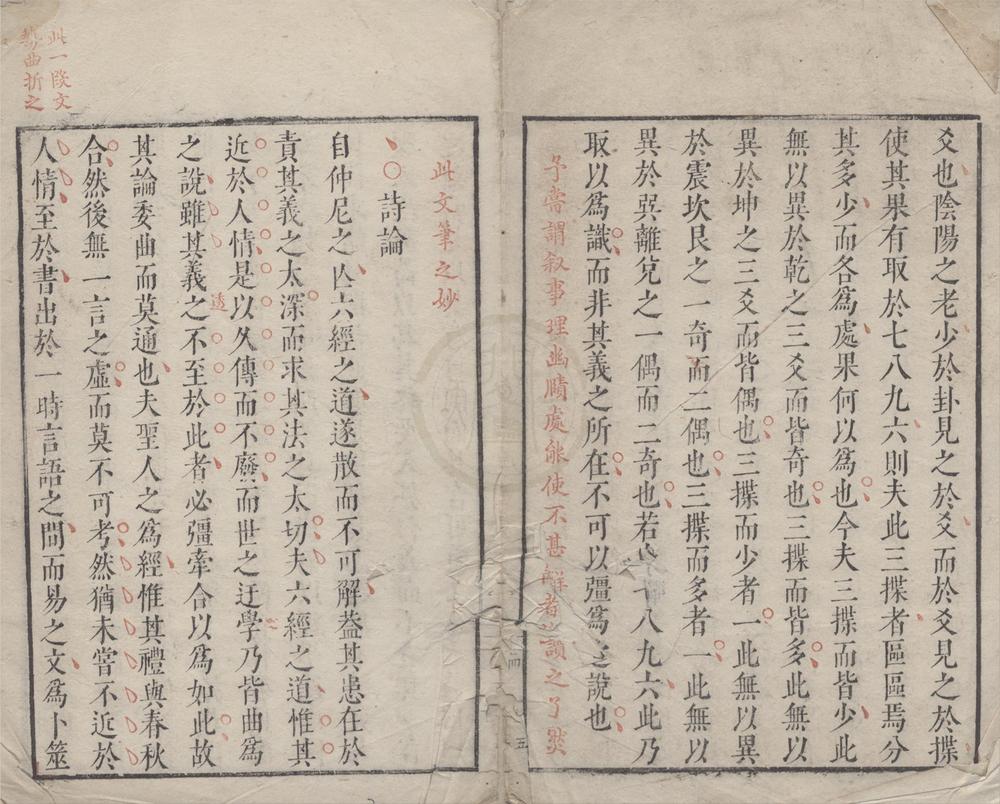 爻也陰陽之老少於卦見之於爻而於爻見之於揲
使其果有取於七八九六則夫此三揲者區區焉分
其多少而各爲處果何以爲也今夫三揲而皆少此
無以異於乾之三爻而皆奇也三揲而皆多此無以
異於坤之三爻而皆偶也三揲而少者一此無以異
於震坎艮之一奇而二偶也三揲而多者一此無以
異於巽離兌之一偶而二奇也若夫七八九六此乃
取以爲識而非其義之所在不可以彊爲之說也
予嘗謂叙事理幽賾處能使不甚解者讀之了然
此文筆之妙
詩論
自仲尼之亾六經之道遂散而不可解葢其患在於
責其義之太深而求其法之太切夫六經之道惟其
近於人情是以久傳而不廢而世之迂學乃皆曲爲
之說雖其義之不至於此者必彊牽合以爲如此故
透
其論委曲而莫通也夫聖人之爲經惟其禮與春秋
合然後無一言之虛而莫不可考然猶未嘗不近於
人情至於書出於一時言語之間而易之文爲卜筮
此一段文
勢曲折之
五